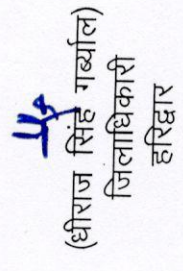 (धीराज सिंह गर्ब्याल)
जिलाधिकारी
हरिद्वार